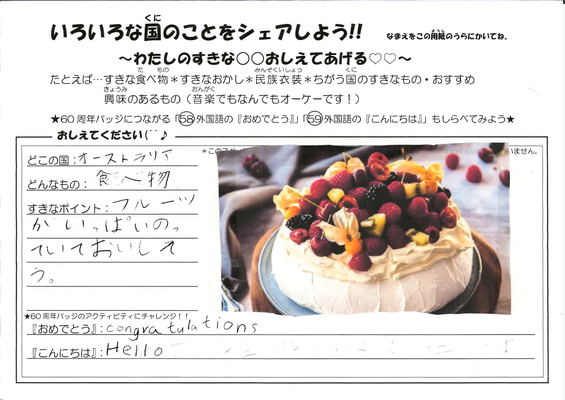 いろいろな国のことをシェアしよう!!
なまえをこの用紙のうらにかいてね。
～わたしのすきな○○おしえてあげる♡♡～
たとえば…すきな食べ物＊すきなおかし＊民族衣装＊ちがう国のすきなもの・おすすめ
興味のあるもの（音楽でもなんでもオーケーです！）
★60周年バッジにつながる「58外国語の『おめでとう』」「59外国語の『こんにちは』」もしらべてみよう★
おしえてください(^^♪
どこの国：オーストラリア
どんなもの：食べ物
すきなポイント：フルーツ
がいっぱいのっ
ていておいしそ
う。
★60周年バッジのアクティビティにチャレンジ！！
『おめでとう』：congratulations
『こんにちは』：Hello